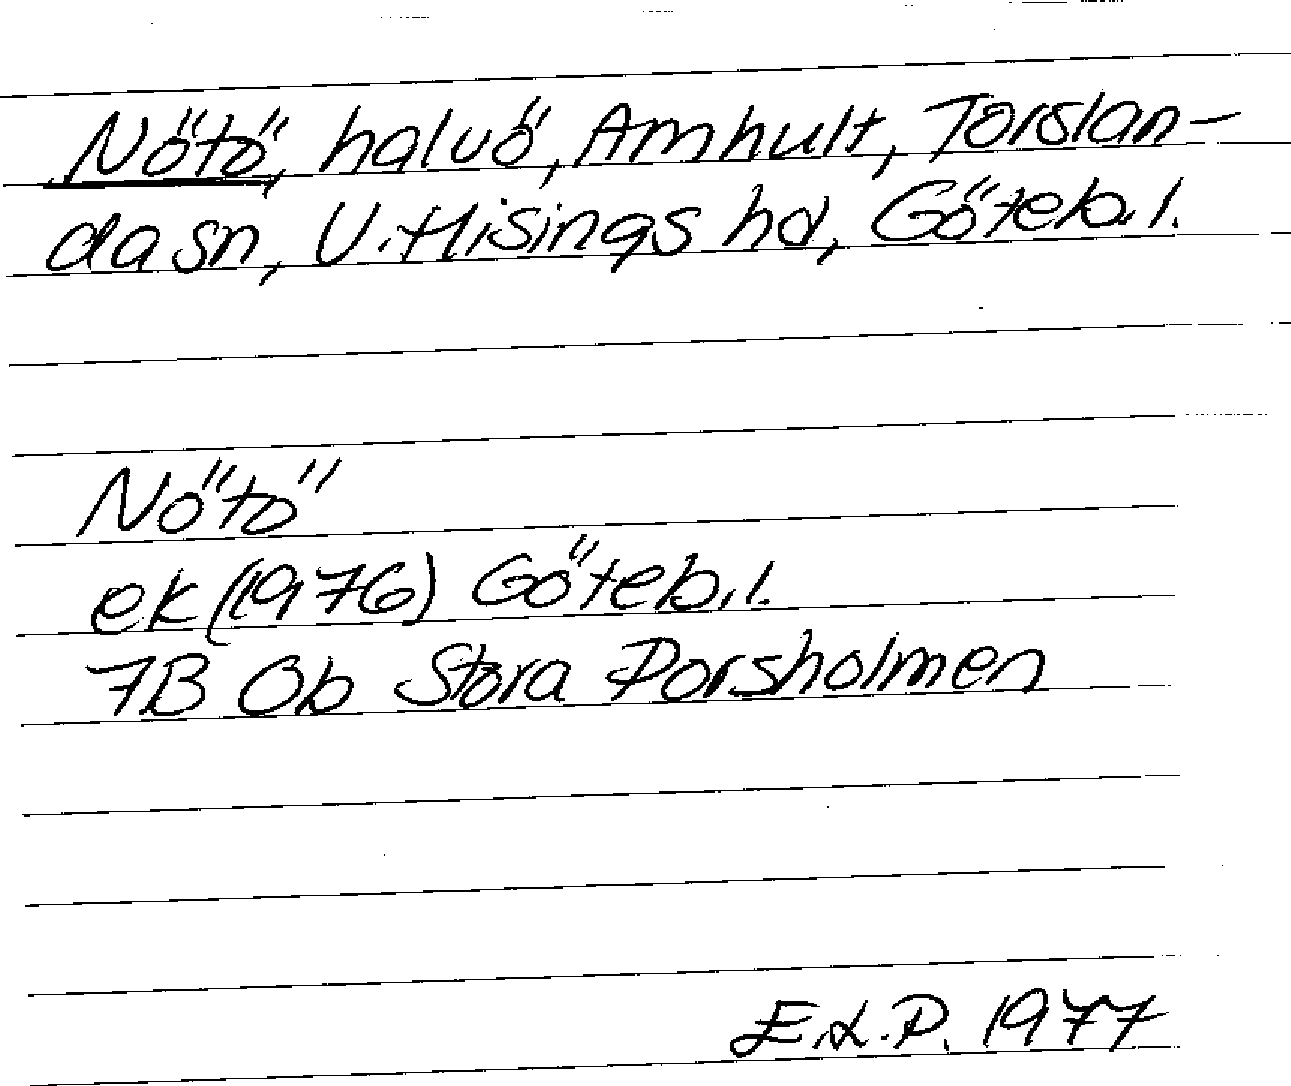 Nötö, halvö, Amhult, Torslan-
da sn, V. Hisings hd, Göteb. l.
Nötö
ek (1976) Göteb. l.
7B 0b Stora Porsholmen
E.L.P. 1977